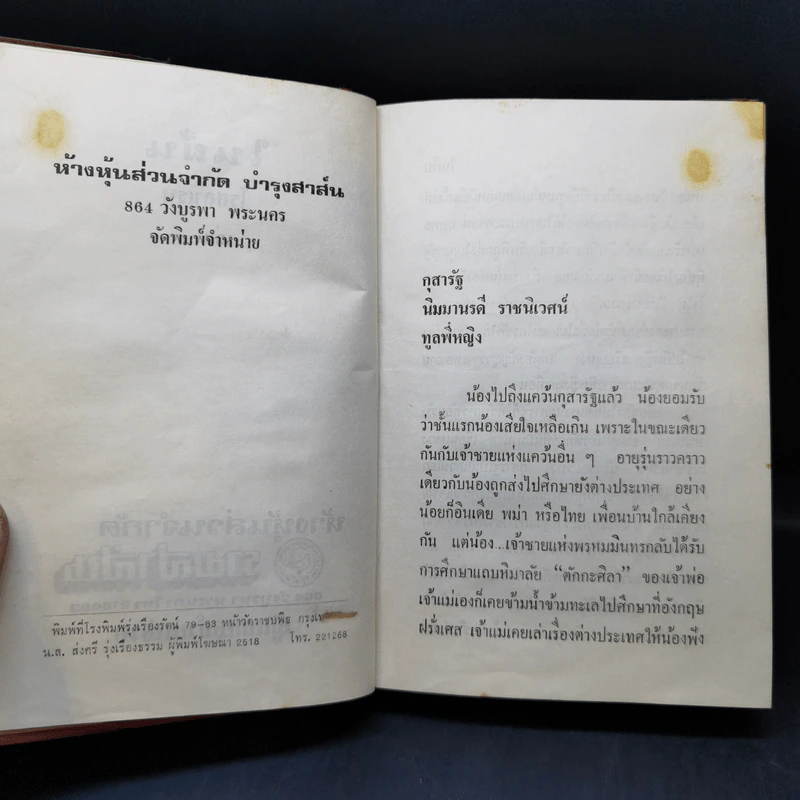 ห้างหุ้นส่วนจำกัด บำรุงสาส์น
864 วังบูรพา พระนคร
จัดพิมพ์จำหน่าย
พิมพ์ที่โรงพิมพ์รุ่งเรืองรัตน์ 79-83 หน้าวัดราชบพิธ
น.ส. ส่งศรี รุ่งเรืองธรรม ผู้พิมพ์โฆษณา 2518 โทร. 221268
กุสารัฐ
นิมมานรดี ราชนิเวศน์
ทูลพี่หญิง
น้องไปถึงแคว้นกุสารัฐแล้ว น้องยอมรับ
ว่าชั้นแรกน้องเสียใจเหลือเกิน เพราะในขณะเดียว
กันกับเจ้าชายแห่งแคว้นอื่น ๆ อายุรุ่นราวคราว
เดียวกับน้องถูกส่งไปศึกษายังต่างประเทศ อย่าง
น้อยก็อินเดีย พม่า หรือไทย เพื่อนบ้านใกล้เคียง
กัน แต่น้อง...เจ้าชายแห่งพรหมมินทรกลับได้รับ
การศึกษาแถบหิมาลัย “ตักกะศิลา” ของเจ้าพ่อ
เจ้าแม่เองก็เคยข้ามน้ำข้ามทะเลไปศึกษาที่อังกฤษ
ฝรั่งเศส เจ้าแม่เคยเล่าเรื่องต่างประเทศให้น้องฟัง